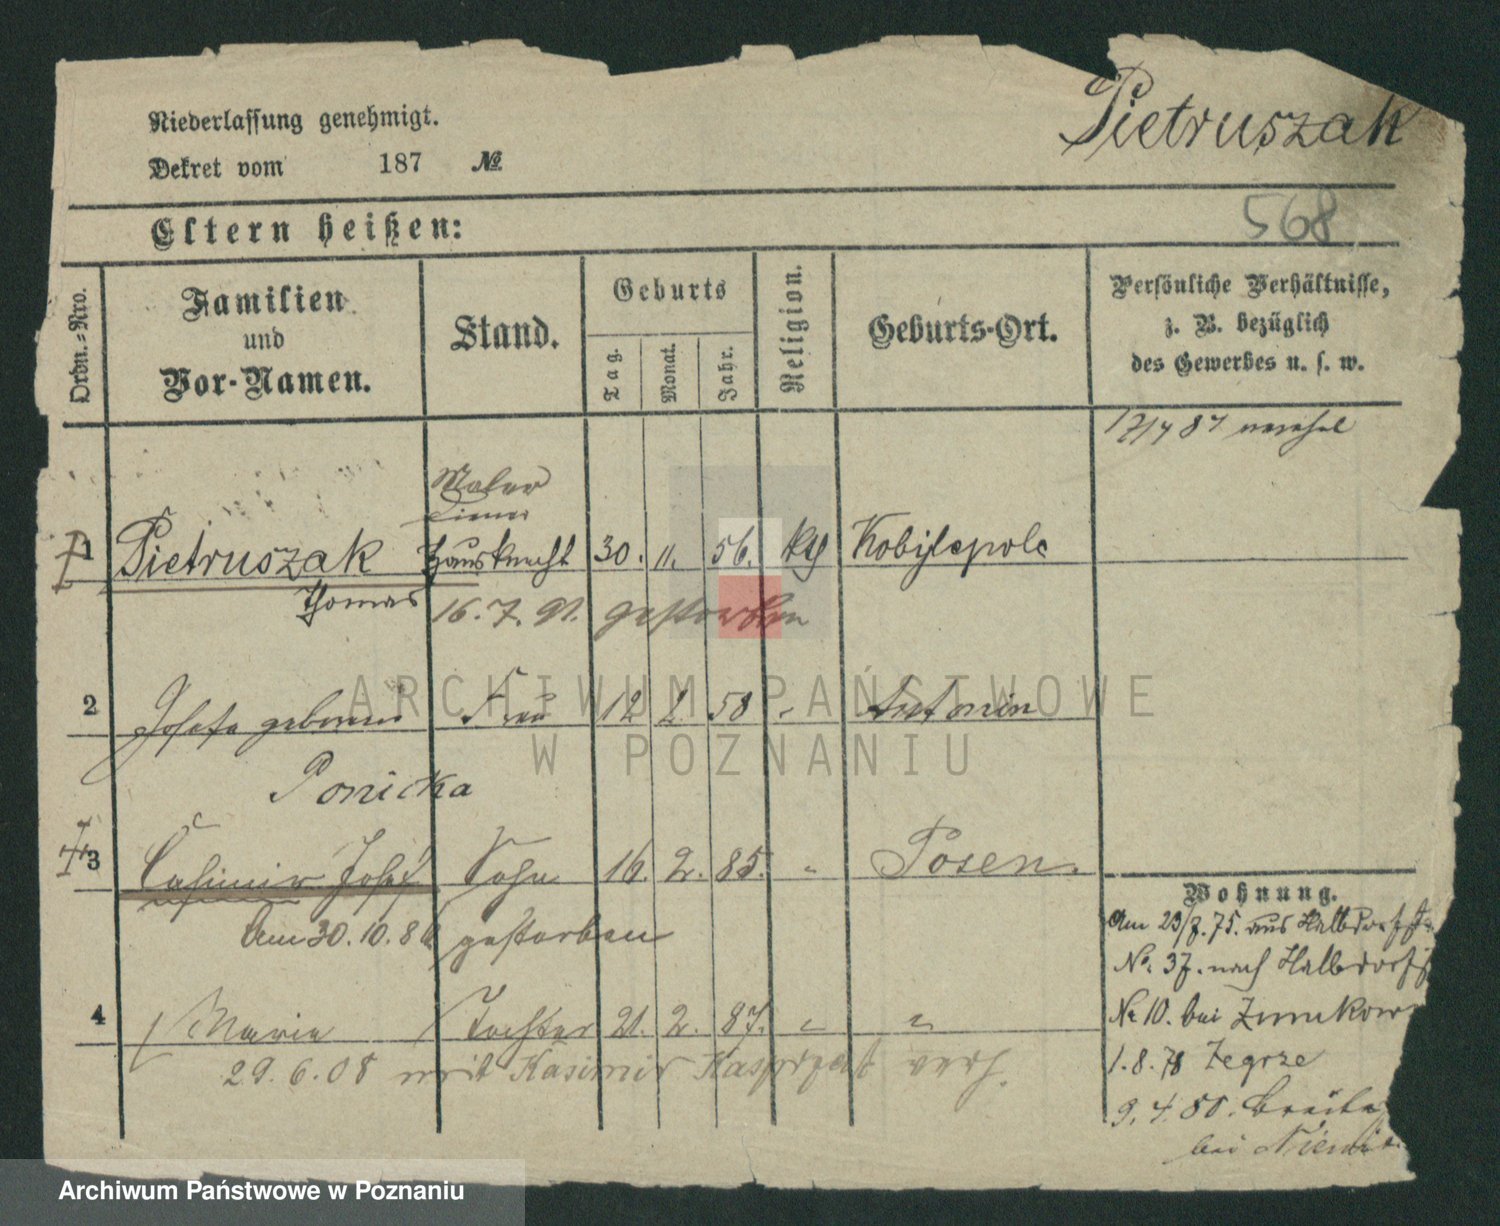 Niederlassung genehmigt.
Pietruszak
Dekret vom 187 №
568
Eltern heißen:
Ordn.-Nro.
Familien und Vor-Namen.
Stand.
Geburts
Tag.
Monat.
Jahr.
Religion.
Geburts-Ort.
Persönliche Verhältnisse,
z. B. bezüglich
des Gewerbes u. s. w.
Maler
1 Pietruszak Hausknecht 30. 11. 56. kth Kobylepole
Thomas
16. 7. 91. gestorben
2 Josefa geborene Frau 12 2 58 " Antonin
Ponicka
3 Casimir Josef Sohn 16. 2. 85. " Posen.
Am 30. 10. 86 gestorben
4 Marie Tochter 21. 2. 87. " "
29. 6. 08 mit Kasimir Kasprzak verh.
Wohnung.
Am 23/7. 75. aus Halbdorfstr
No. 37. nach Halbdorfst
No 10. bei
1. 8. 78 Zegrze
9. 4. 80. Breite
bei
ARCHIWUM PAŃSTWOWE
W POZNANIU
Archiwum Państwowe w Poznaniu